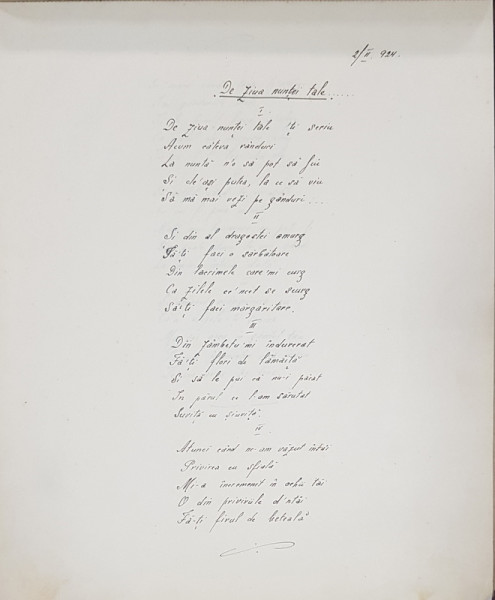 2/II 924.
De ziua nunței tale.....
I
De ziua nunței tale 'ți scriu
Acum câteva rânduri
La nuntă n'o să pot să fiu
Și de'ași putea, la ce să viu
Să mă mai vezi pe gânduri...
II
Și din al dragostei amurg
Fă-ți faci o sărbătoare
Din lacrimele care'mi curg
Ca zilele ce'ncet se scurg
Să-ți faci mărgăritare.
III
Din zâmbetu'mi îndurerat
Fă-ți flori de lămâiță
Și să le pui că nu-i păcat
In părul ce l-am sărutat
Șuviță cu șuviță.
IV
Atunci când ne-am văzut întâi
Privirea cu sfială
Mi-a încremenit în ochii tăi
O din privirile d'ntâi
Fă-ți firul de beteală